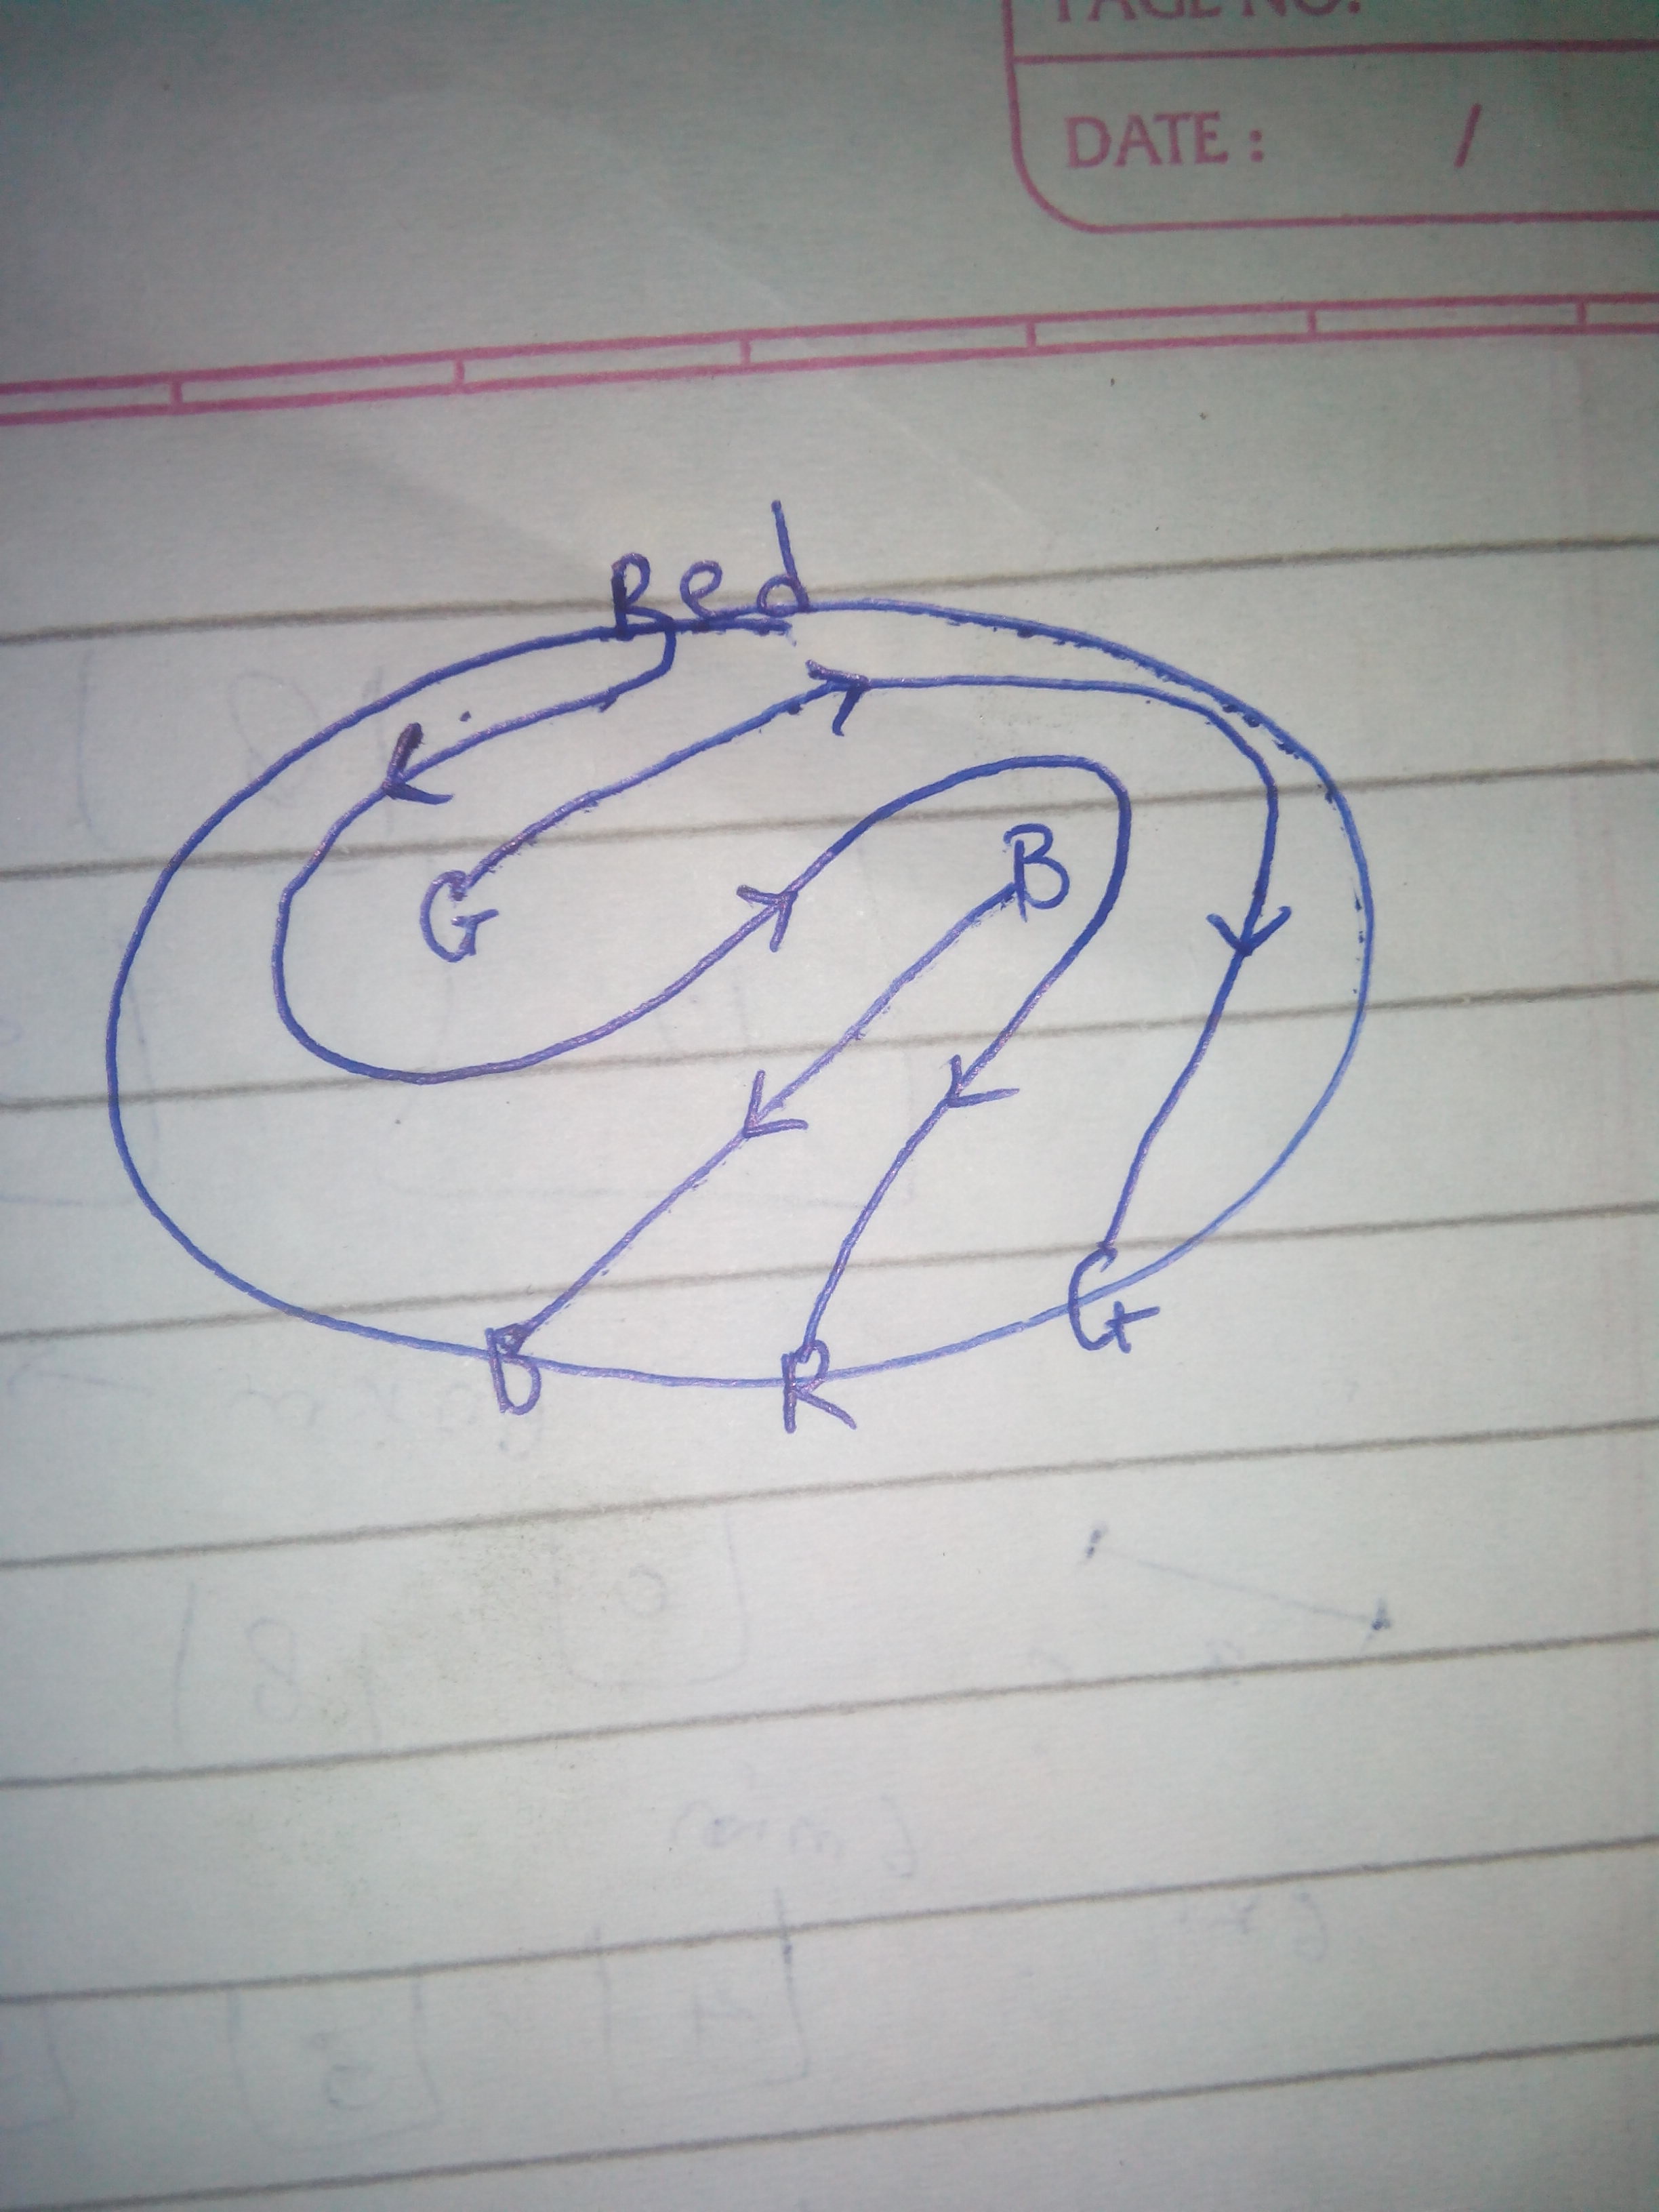 PAGE NO.
DATE : /
Red
G
B
B
R
G